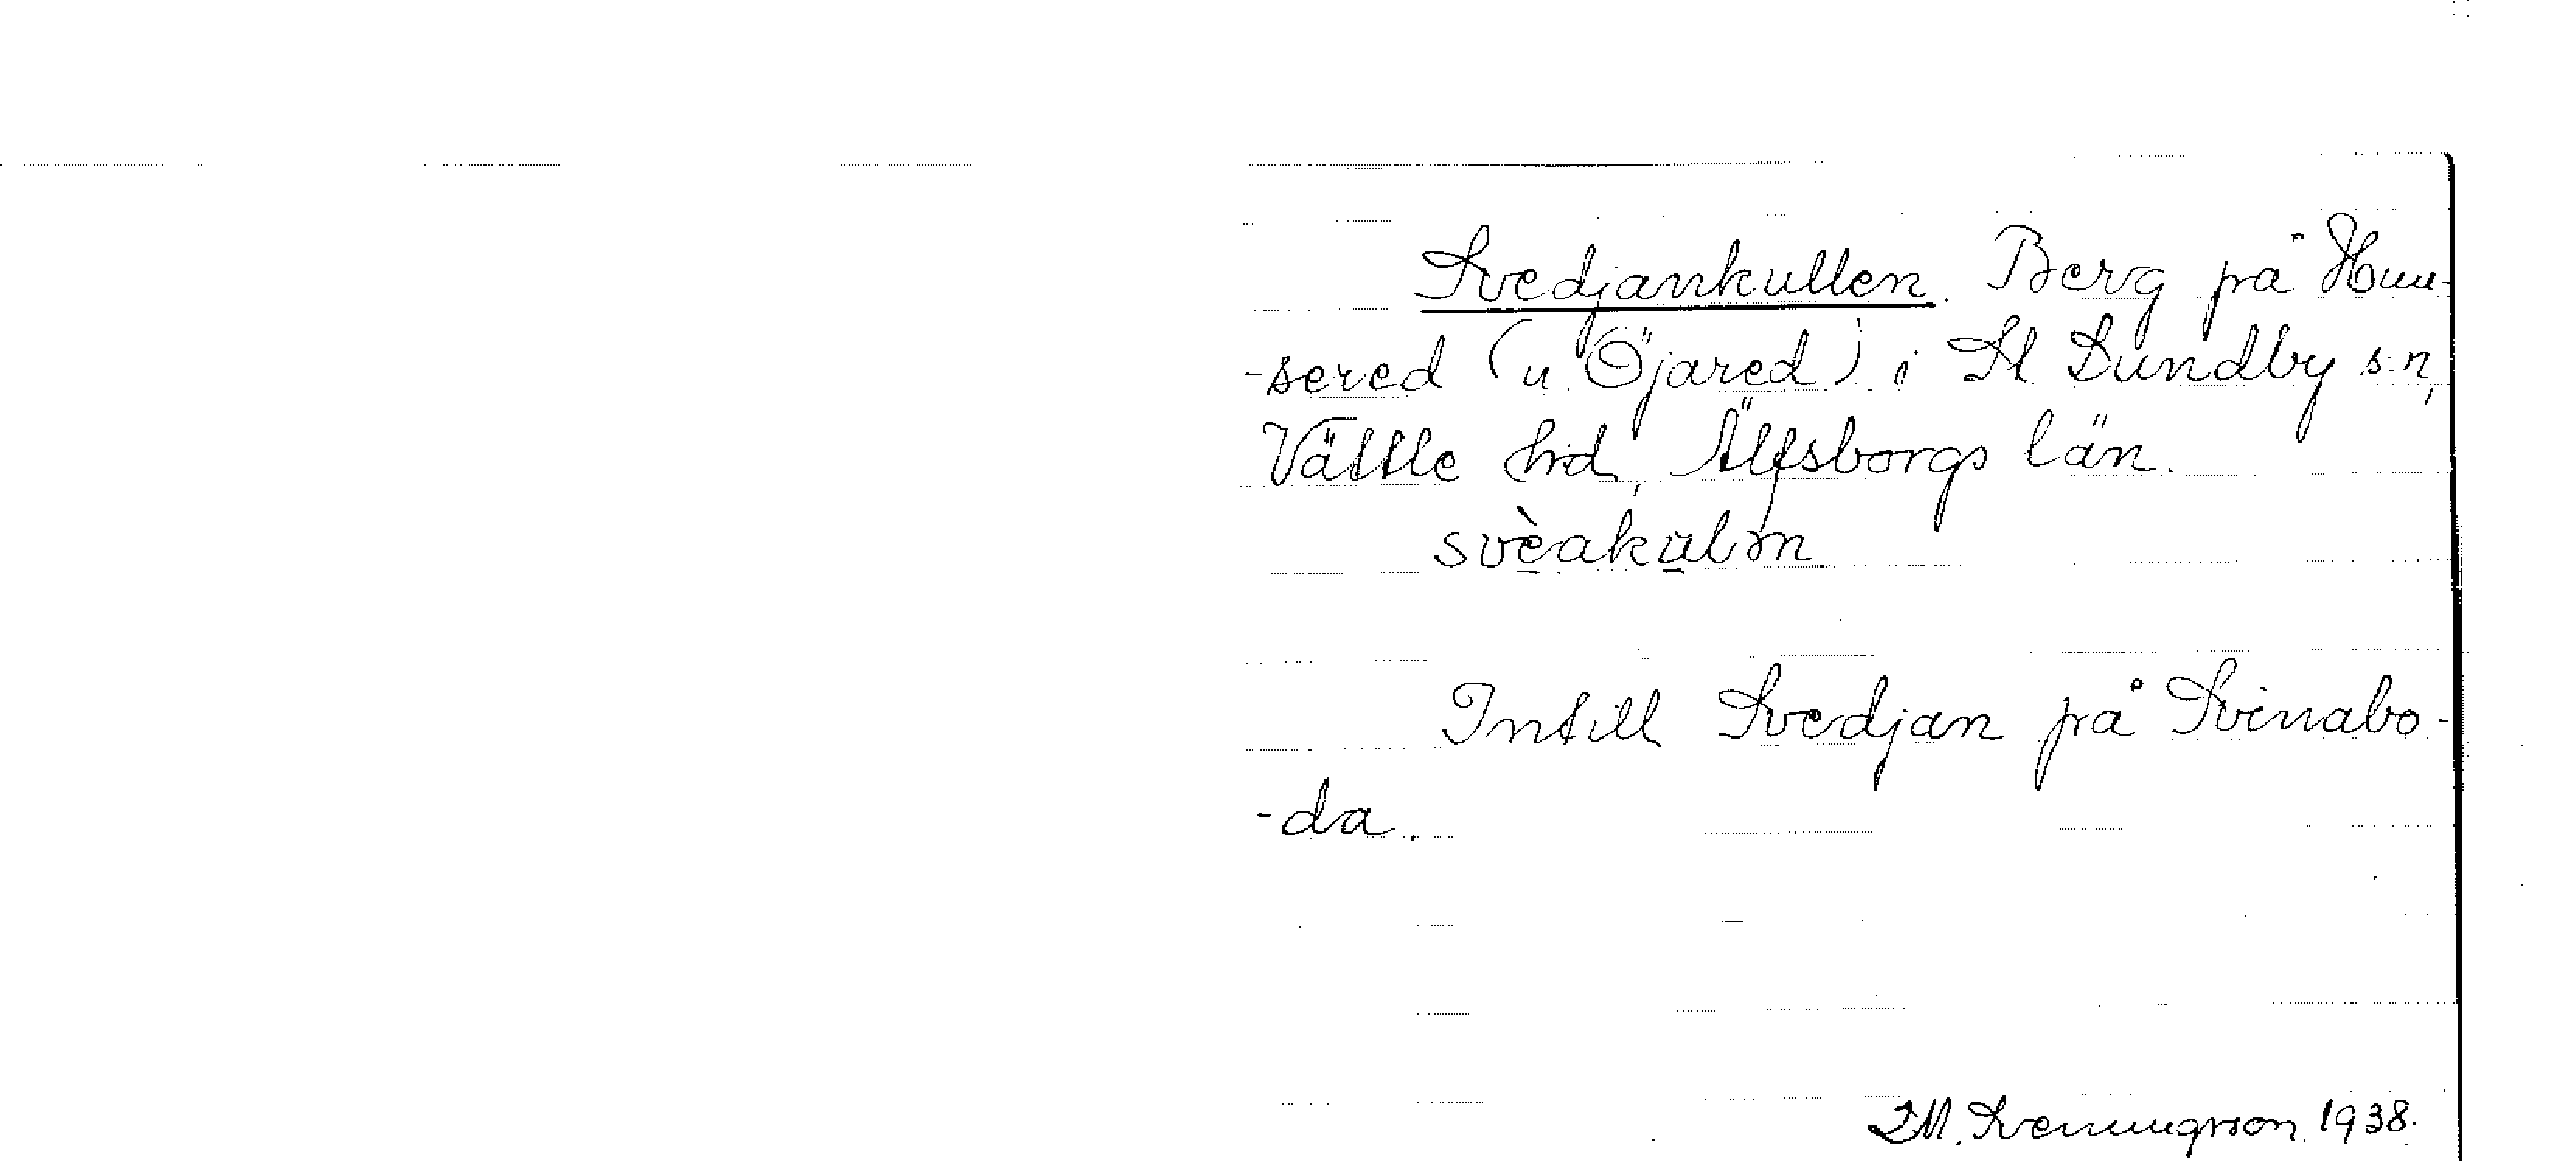 Svedjankullen. Berg på Hun-
-sered (u. Öjared) i Sl Lundby s:n,
Vättle hd, Älfsborgs län.
svèakulm
Intill Svedjan på Svinabo-
-da.
1938.